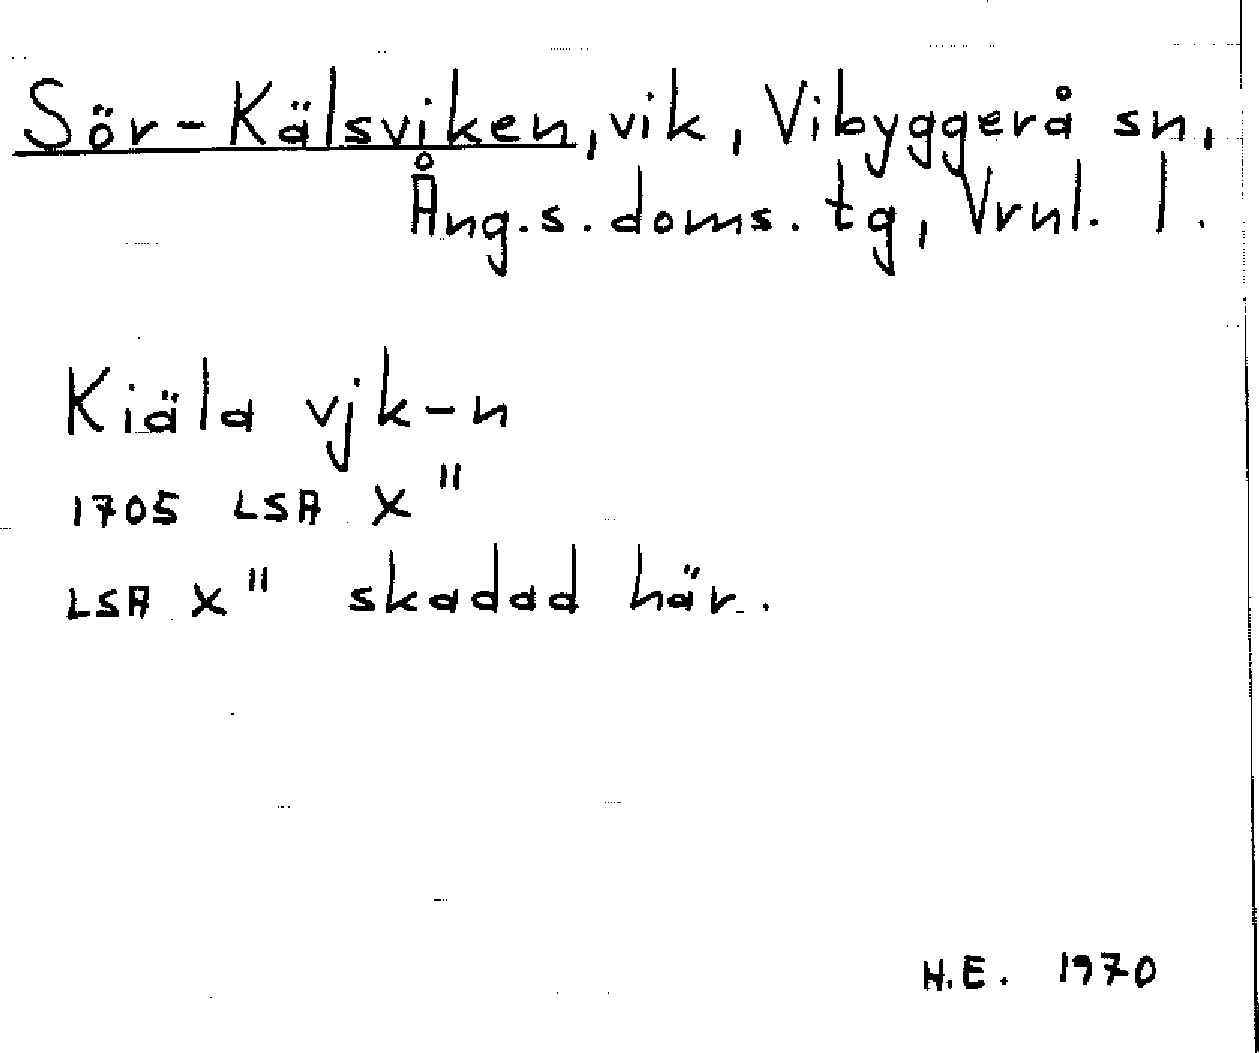 Sör-Kälsviken, vik, Vibyggerå sn,
Ång.s.doms.tg, Vrnl. l.
Kiäla vjk-n
1705 LSA X"
LSA X" skadad här.
H.E. 1970